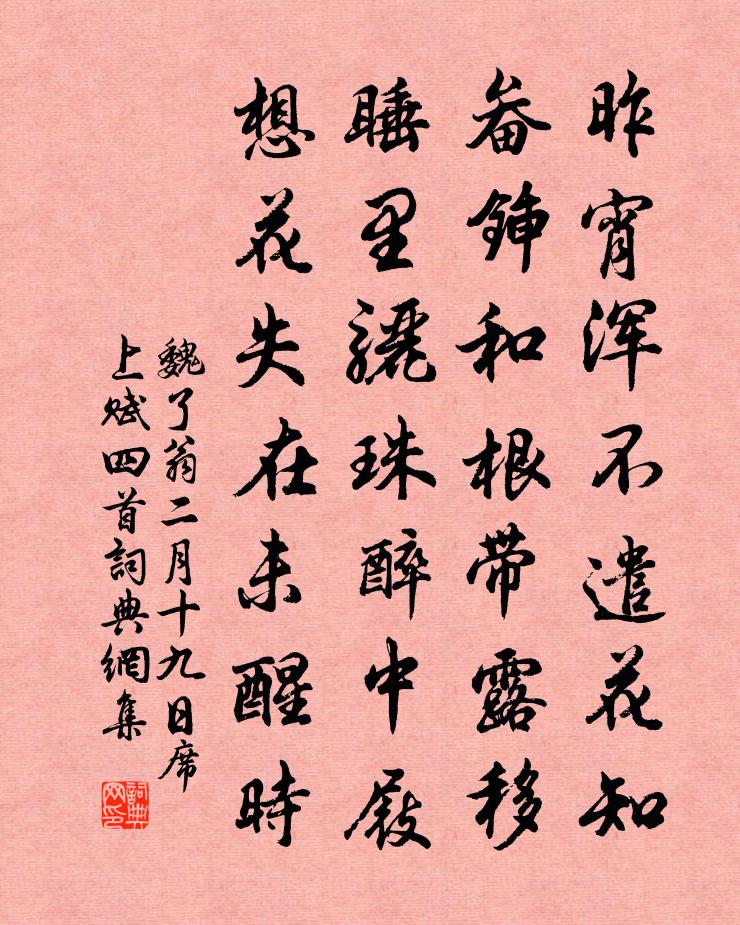 昨宵浑不遣花知
畚鍤和根带露移
睡里驪珠醉中屐
想花失在未醒時
魏了翁二月十九日席
上赋四首詞典網集
詞典网印